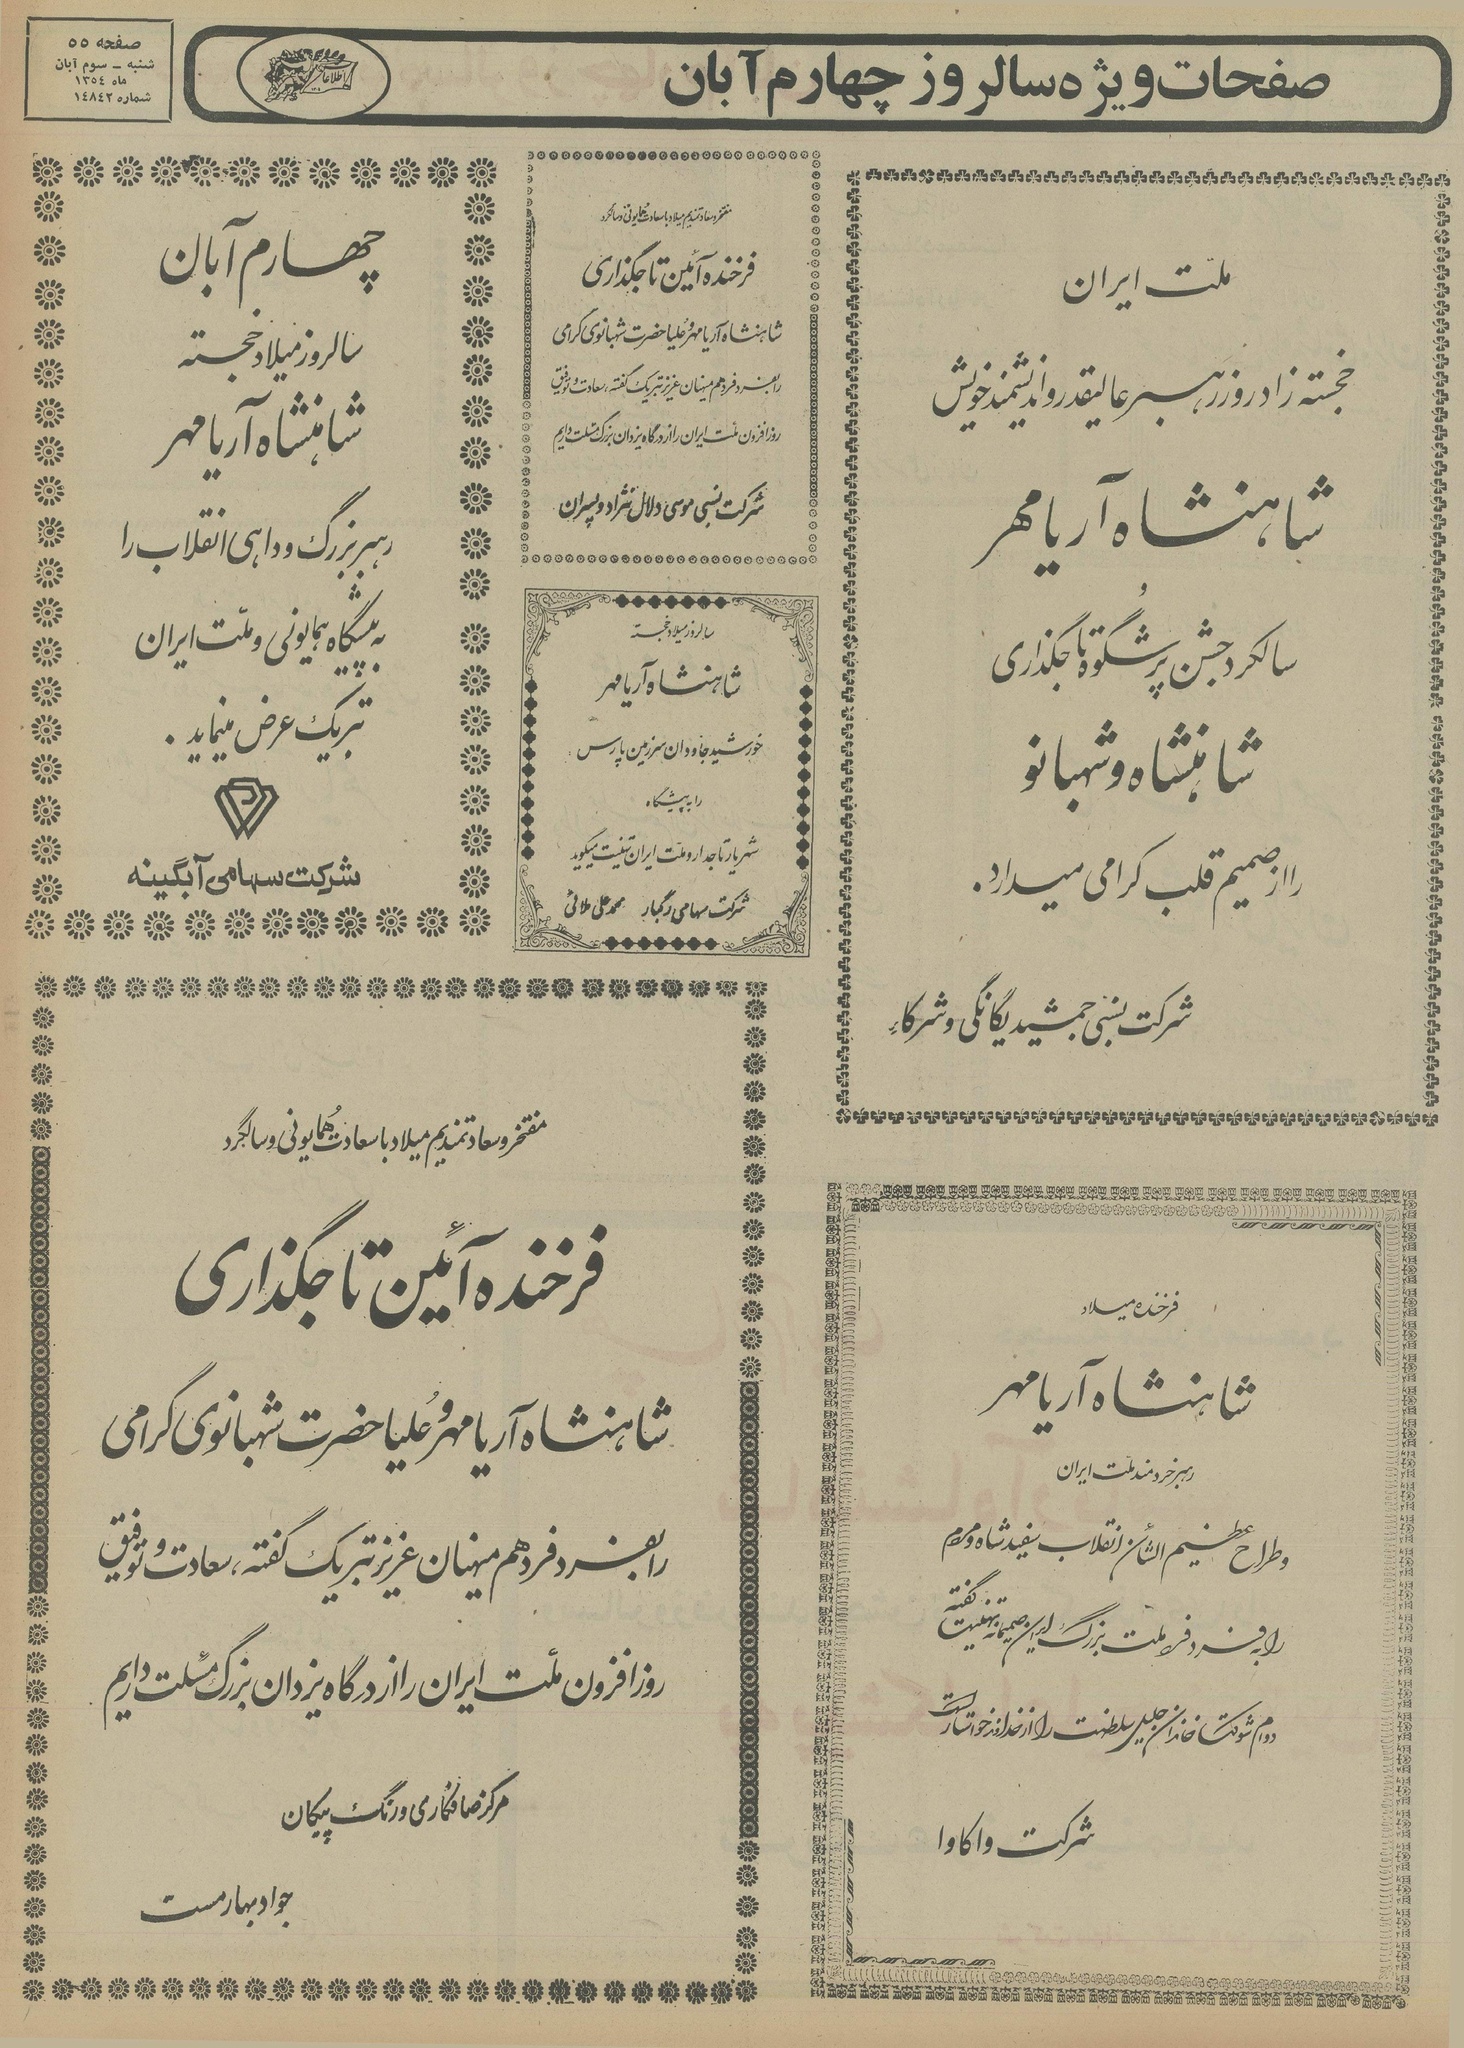 صفحات ویژه سالروز چهارم آبان
اطلاعات
صفحه ۵۵
شنبه ـ سوم آبان
ماه ۱۳۵۴
شماره ۱۴۸۴۲
ملت ایران
خجسته زادروز رهبر عالیقدر و اندیشمند خویش
شاهنشاه آریامهر
و
سالگرد جشن پرشکوه تاجگذاری
شاهنشاه و شهبانو
را از صمیم قلب گرامی میدارد.
شرکت نسبی جمشید یگانگی و شرکاء
مفتخر و سعادتمندیم میلاد با سعادت همایونی و سالگرد
فرخنده آئین تاجگذاری
شاهنشاه آریامهر و علیاحضرت شهبانوی گرامی
را بفرد فرد هم میهنان عزیز تبریک گفته، سعادت و توفیق
روزافزون ملت ایران را از درگاه یزدان بزرگ مسئلت داریم
شرکت نسبی موسی دلال نژاد و پسران
سالروز میلاد خجسته
شاهنشاه آریامهر
خورشید جاودان سرزمین پارس
را به پیشگاه
شهریار تاجدار و ملت ایران تهنیت میگوید
شرکت سهامی رگبار محمد علی طلائی
چهارم آبان
سالروز میلاد خجسته
شاهنشاه آریامهر
رهبر بزرگ و داهی انقلاب را
به پیشگاه همایونی و ملت ایران
تبریک عرض مینماید.
شرکت سهامی آبگینه
فرخنده میلاد
شاهنشاه آریامهر
رهبر خردمند ملت ایران
و طراح عظیم الشأن انقلاب سفید شاه و مردم
را به فرد فرد ملت بزرگ ایران صمیمانه تهنیت گفته
دوام شوکت خاندان جلیل سلطنت را از خداوند خواستار است
شرکت واکاوا
مفتخر و سعادتمندیم میلاد با سعادت همایونی و سالگرد
فرخنده آئین تاجگذاری
شاهنشاه آریامهر و علیاحضرت شهبانوی گرامی
را بفرد فرد هم میهنان عزیز تبریک گفته، سعادت و توفیق
روزافزون ملت ایران را از درگاه یزدان بزرگ مسئلت داریم
مرکز صافکاری و رنگ پیکان
جواد بهارمست